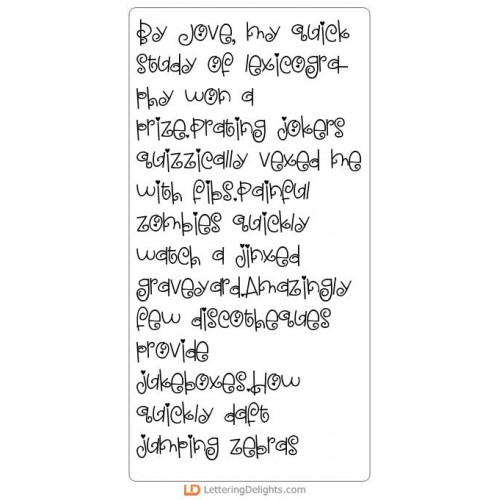 By Jove, my quick
study of lexicogra
phy won a
prize.Prating jokers
quizzically vexed me
with fibs.Painful
zombies quickly
watch a jinxed
graveyard.Amazingly
few discotheques
provide
jukeboxes.How
quickly daft
jumping zebras
LD LetteringDelights.com